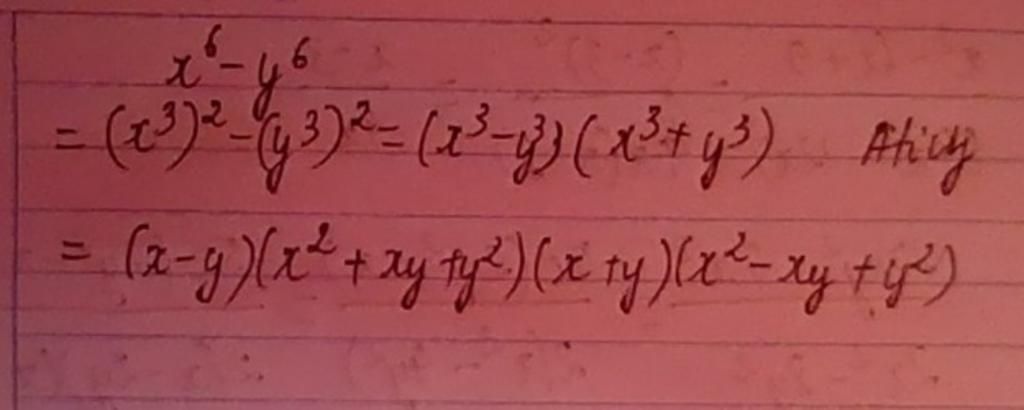 x⁶ - y⁶
= (x³)² - (y³)² = (x³ - y³) (x³ + y³)
= (x - y)(x² + xy + y²)(x + y)(x² - xy + y²)